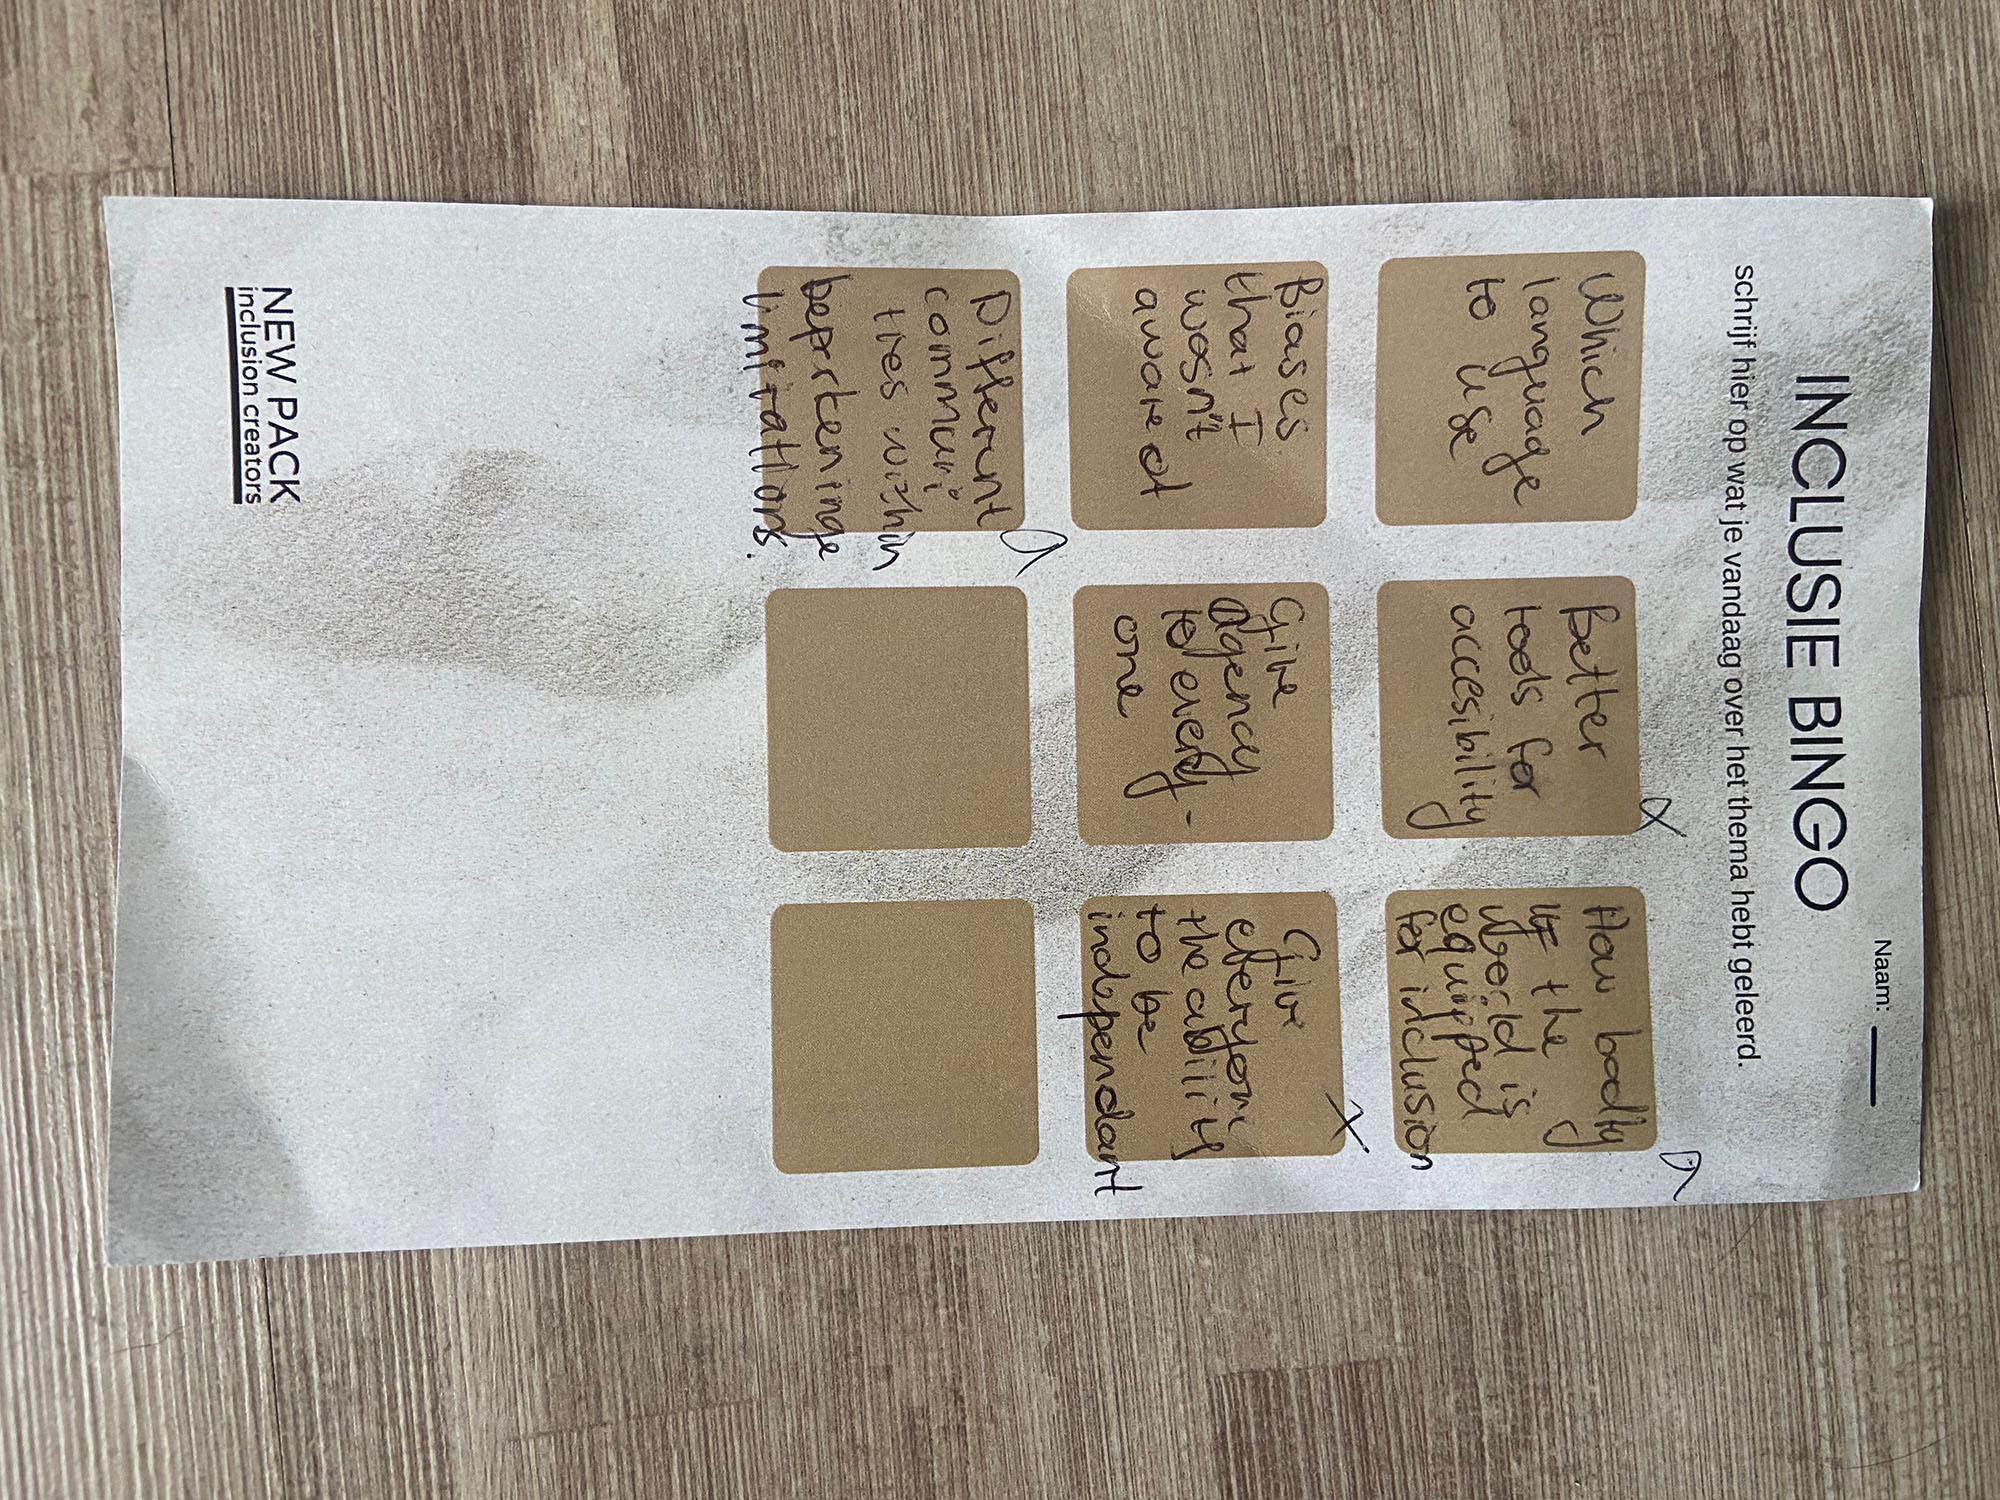 Naam:
INCLUSIE BINGO
schrijf hier op wat je vandaag over het thema hebt geleerd.
Which
language
to use
Better
tools for
accesibility
How badly
the
world is
equipped
for inclusion
Biases
that I
wasn't
aware of
Give
agency
to every-
one
Give
everyone
the ability
to be
independant
Different
communi
ties within
beprkeninge
limitations.
NEW PACK
inclusion creators